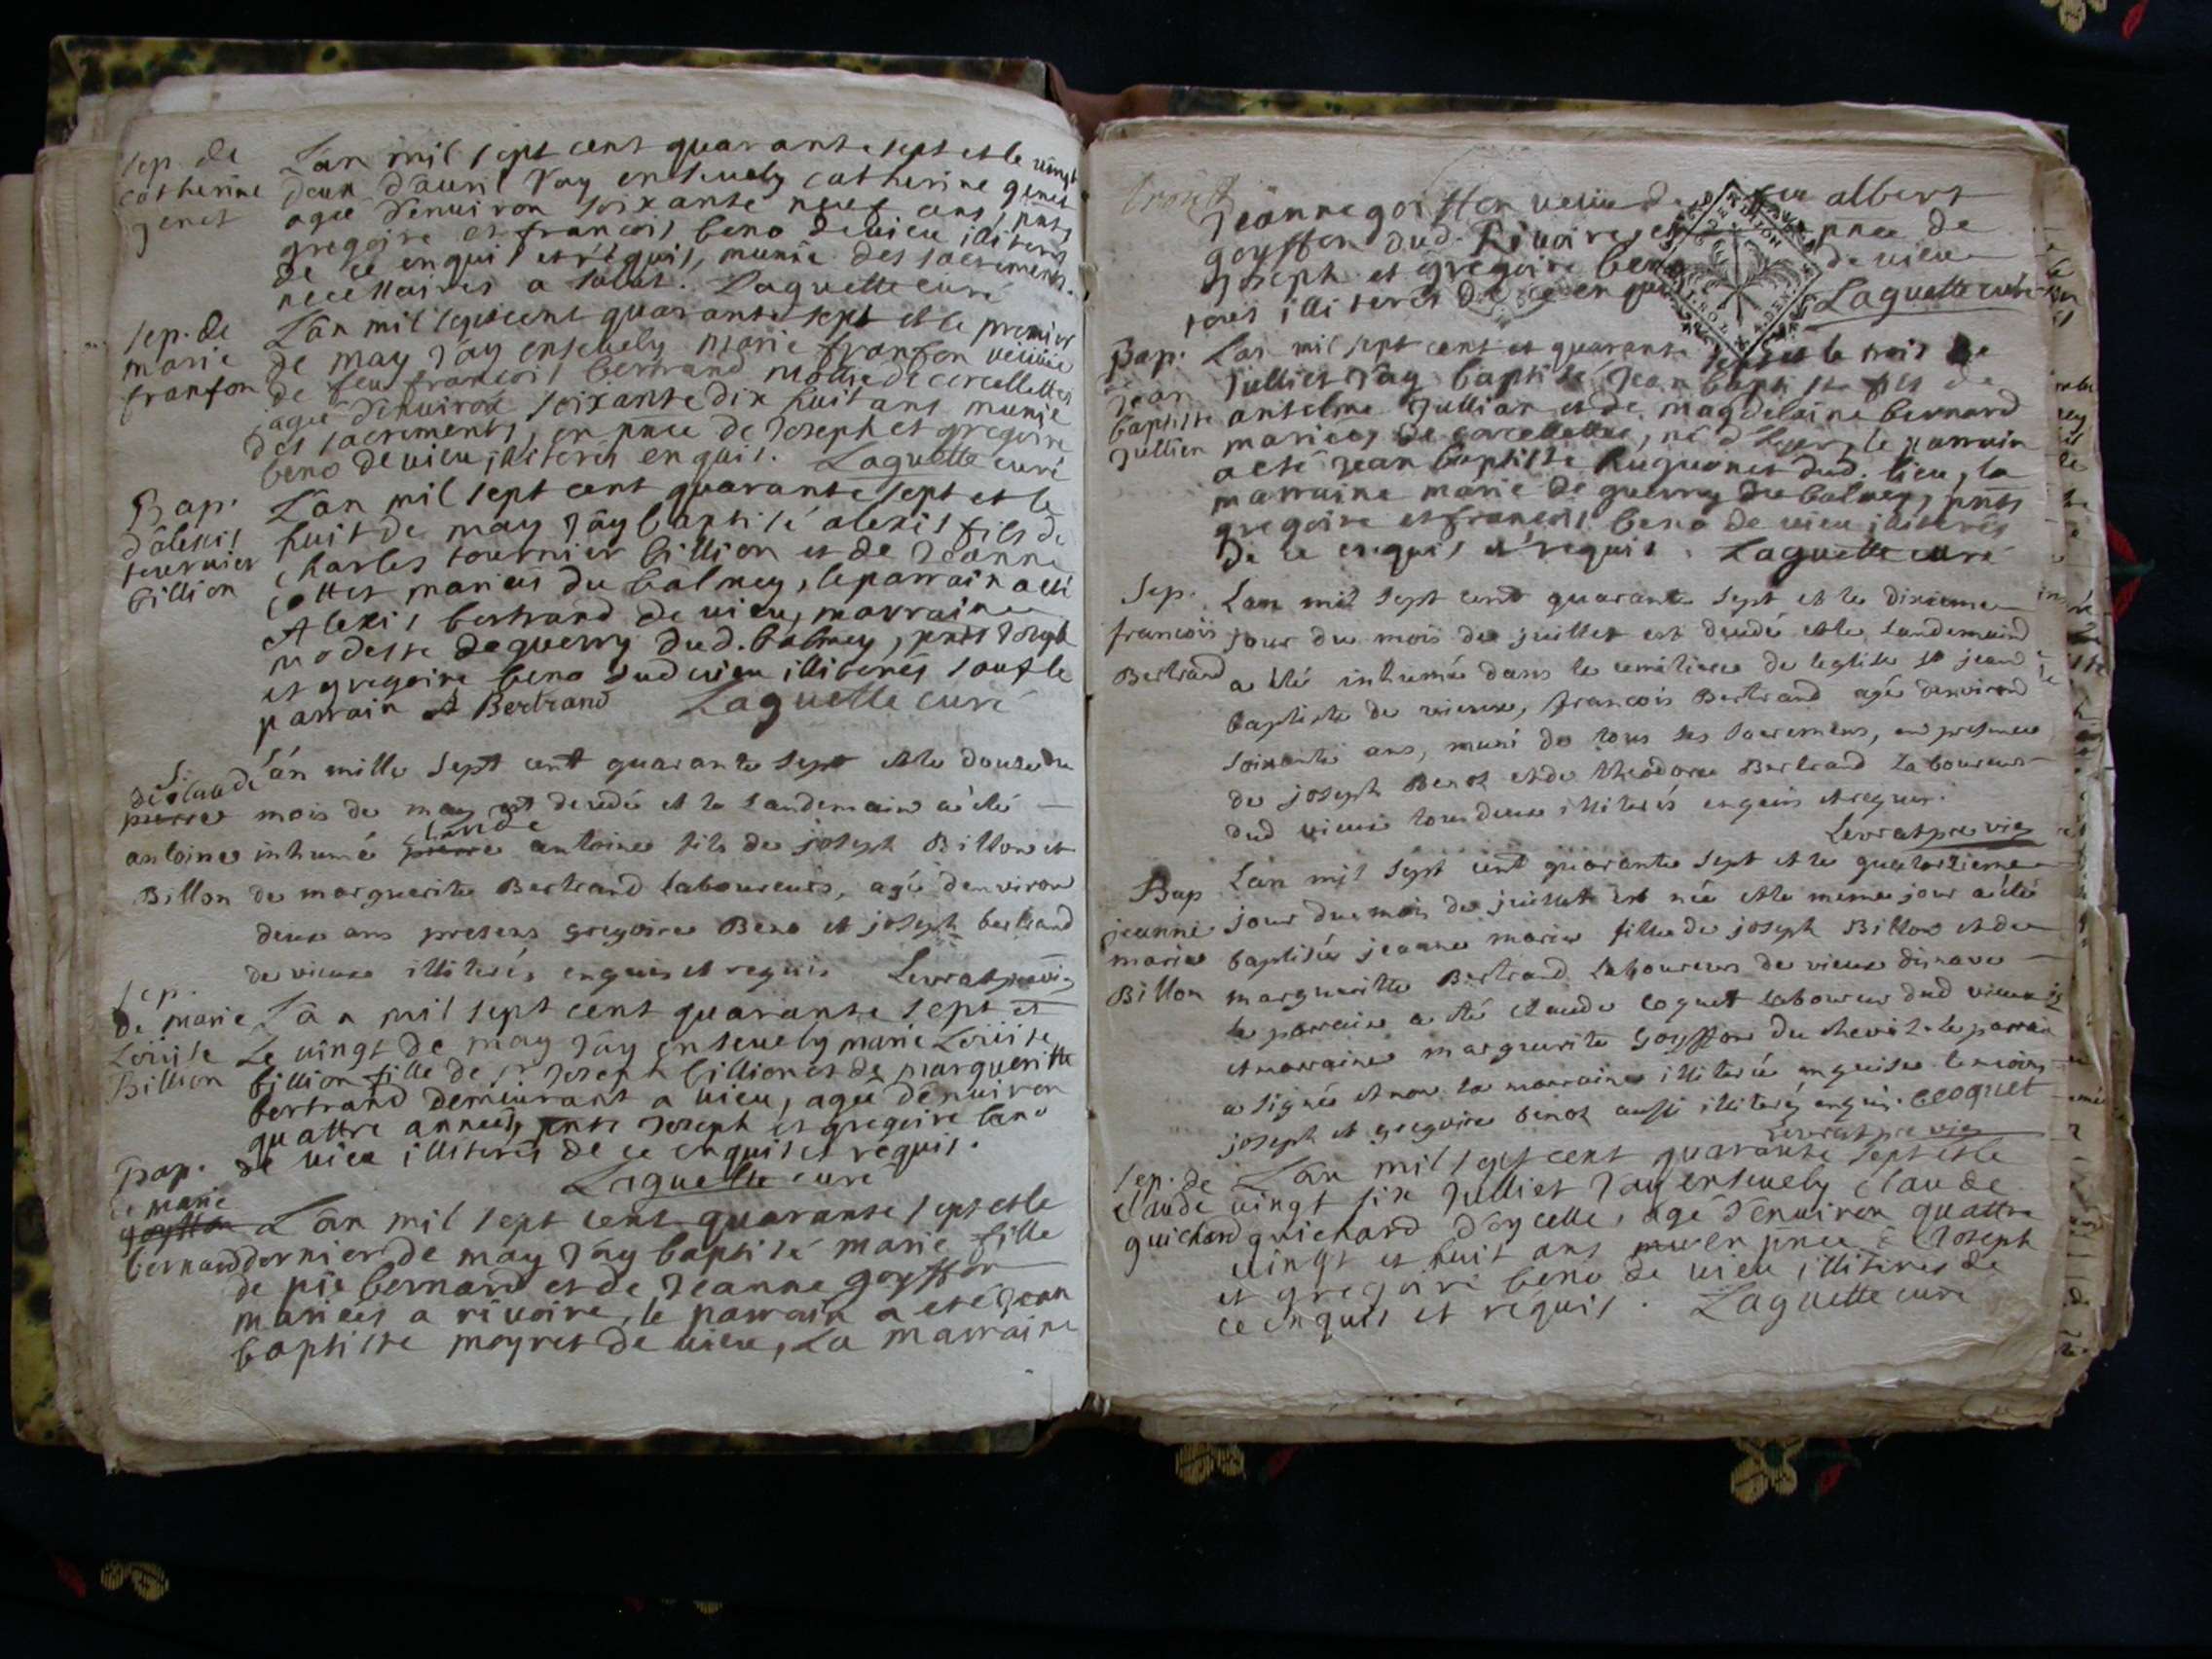 Sep. de
catherine
genet
L'an mil sept cent quarante sept et le vingt
deux d'avril j'ay ensevely catherine genet
agée d'environ soixante neuf ans, pnts
gregoire et francois beno de vieu illiteres
de ce enquis et requis, munie des sacrements
necessaires a salut. Laguette curé
Sep. de
marie
franfon
L'an mil sept cent quarante sept et le premier
de may j'ay ensevely marie franfon veuve
de feu francois bertrand de cercellettes
agée d'environ soixante dix huit ans munie
des sacrements, en pnce de Joseph et gregoire
beno de vieu, illiterés enquis. Laguette curé
Bap.
d'alexis
tournier
billion
L'an mil sept cent quarante sept et le
huit de may j'ay baptisé alexis fils de
charles tournier billion et de Jeanne
cottet mariés du balmey, le parrain a eté
Alexis bertrand de vieu, marraine
modeste deguerry dud. balmey, pnts Joseph
et gregoire beno dud vieu illiterés sauf le
parrain A Bertrand Laguette curé
S.
de claude
pierre
antoine
Billon
L'an mille sept cent quarante sept et le douze du
mois de may est decedé et le landemain a été
inhumé pierre claude antoine fils de joseph Billon et
de marguerite Bertrand laboureurs, agé denviron
deux ans presens gregoire Beno et joseph bertrand
de vieux illiterés enquis et requis Levrat pre vic
Sep.
de marie
Louise
Billion
L'an mil sept cent quarante sept et
Le vingt de may j'ay ensevely marie Louise
billion fille de sr Joseph billion et de margueritte
bertrand demeurant a vieu, agée d'environ
quattre années, pnts Joseph et gregoire beno
de vieu illiterés de ce enquis et requis.
Laguette curé
Bap.
de marie
goyffon
bernard
L'an mil sept cent quarante sept et le
dernier de may j'ay baptisé marie fille
de pre bernard et de Jeanne goyffon
mariés a rivoire, le parrain a eté Jean
baptiste meyret de vieu, La marraine
Jeanne goiffon veuve de feu albert
goyffon dud. Rivoire, en pnce de
Joseph et gregoire beno de vieu
tous illiterés de ce enquis Laguette curé
Bap.
de
Jean
baptiste
Jullien
L'an mil sept cent et quarante sept et le trois de
Julliet j'ay baptisé Jean baptiste fils de
antelme Jullian et de magdelaine bernard
mariés de carcellettes, né d'hyer, le parrain
a eté Jean baptiste huguenet dud. lieu, la
marraine marie de guerry du balmey, pnts
gregoire et francois beno de vieu illiterés
de ce enquis et requis. Laguette curé
Sep.
francois
Bertrand
L'an mil sept cent quarante sept et le dixieme
jour du mois de juillet est decedé et le landemain
a été inhumé dans le cemitiere de leglise st jean
baptiste de vieux, francois Bertrand agé denviron
soixante ans, muni de tous ses sacremens, en presence
de joseph Benoz et de theodore Bertrand laboureurs
dud vieux tous deux illiterés enquis et requis.
Levrat pre vic
Bap
jeanne
marie
Billon
L'an mil sept cent quarante sept et le quatorzieme
jour du mois de juillet est née et le meme jour a été
baptisée jeanne marie fille de joseph Billon et de
margueritte Bertrand laboureurs de vieux diznave
le parrain a été claude coquet laboureur dud vieux
et marraine marguerite Goyffon du chevil. le parrain
a signé et non la marraine illiterée enquise temoins
joseph et gregoire benoz aussi illiterés enquis. C Coquet
Levrat pre vic
Sep. de
claude
guichard
L'an mil sept cent quarante sept et le
vingt six Julliet j'ay ensevely claude
guichard d'oycelle, agé d'environ quattre
vingt et huit ans en pnce de Joseph
et gregoire beno de vieu illiterés de
ce enquis et requis. Laguette curé